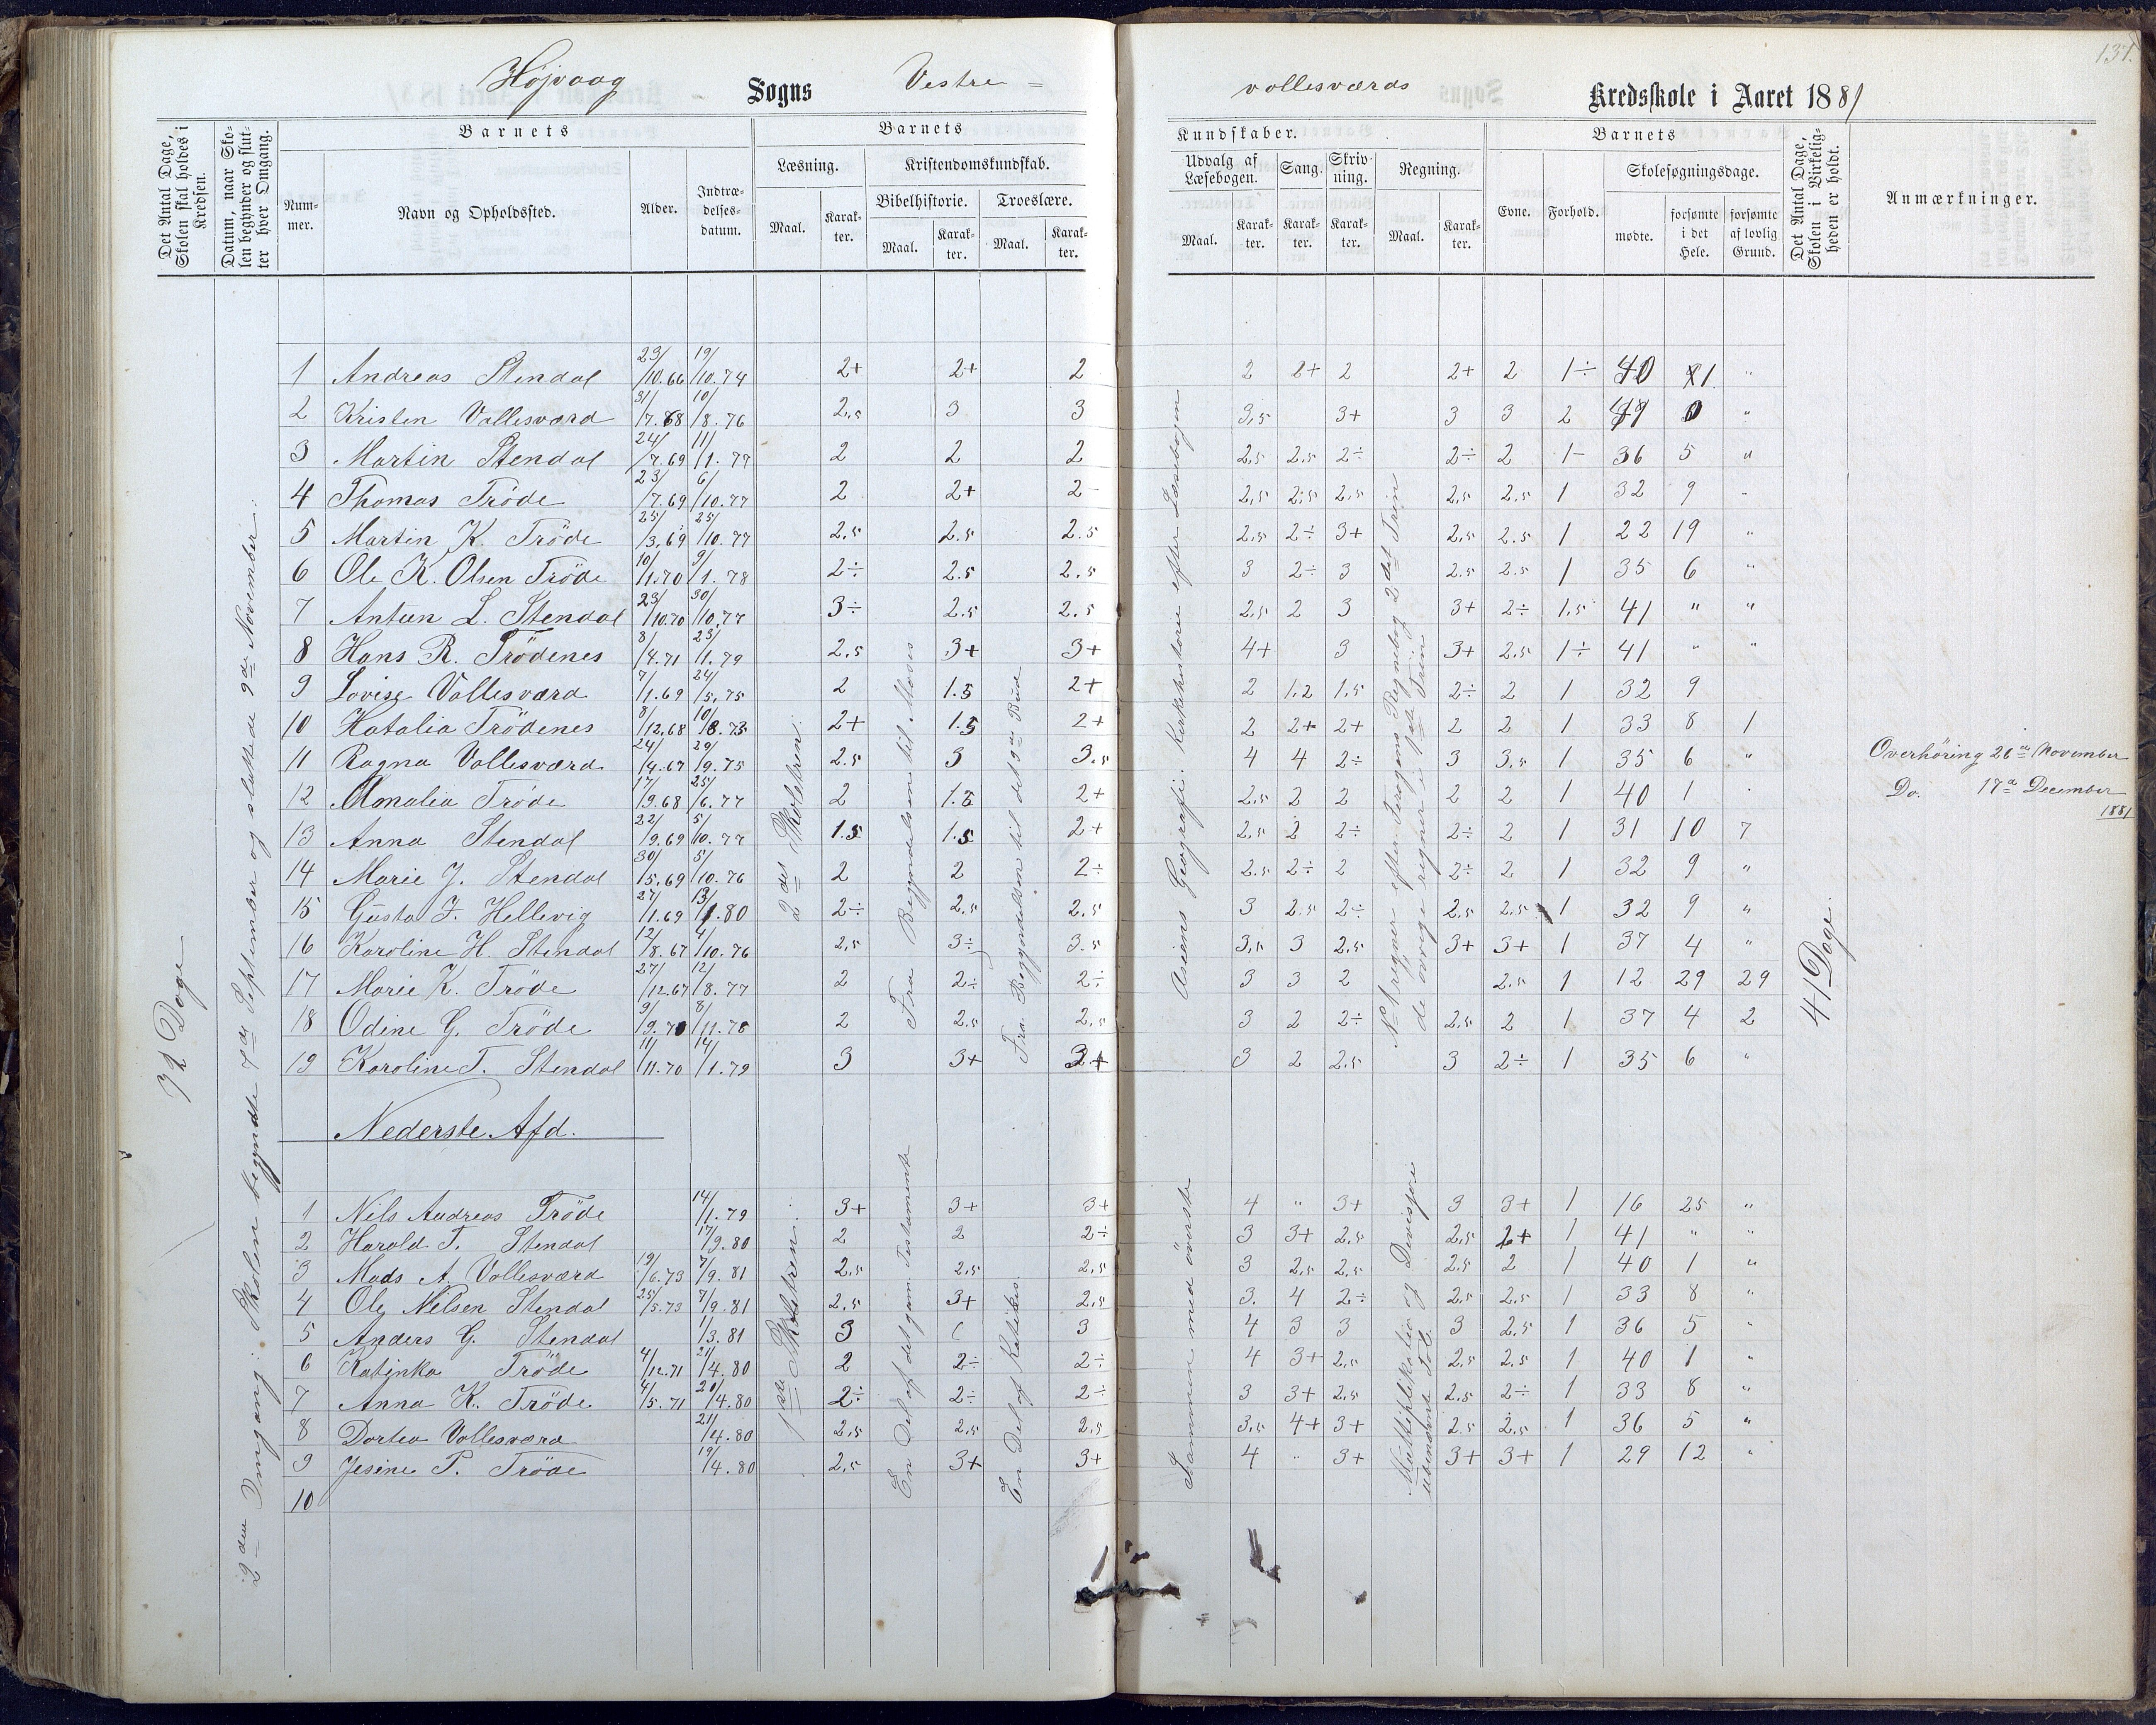 137.
Højvaag Sogns Vestre =
vollesværds Kredsskole i Aaret 1881
Det Antal Dage, Skolen skal holdes i Kredsen.
Datum, naar Skolen begynder og slutter hver Omgang.
Barnets
Nummer.
Navn og Opholdssted.
Alder.
Indtrædelsesdatum.
Barnets
Læsning.
Kristendomskundskab.
Bibelhistorie. Troeslære.
Maal. Karakter. Maal. Karakter. Maal. Karakter.
Kundskaber.
Udvalg af Læsebogen. Sang. Skrivning. Regning.
Maal. Karakter. Karakter. Karakter. Maal. Karakter.
Barnets
Evne. Forhold. Skolesøgningsdage.
mødte. forsømte i det Hele. forsømte af lovlig Grund.
Det Antal Dage, Skolen i Virkeligheden er holdt.
Anmærkninger.
2den Omgang: Skolen begyndte 7de September og sluttede 9de November.
2det Skoletrin.
Fra Begyndelsen til Moses
Fra Begyndelsen til det 9de Bud
Asiens Geografi. Kirkehistorie efter Læsebogen
No 1 regner efter Jerogins Regnebog 2det Trin
de øvrige regner i 1ste Trin
41 Dage.
1 Andreas Stendal 23/10.66 19/10.74 2+ 2+ 2 2 2+ 2 2+ 2 1÷ 40 1 "
2 Kristen Vollesværd 31/7.68 10/8.76 2,5 3 3 3,5 3+ 3 3 2 41 0 "
3 Martin Stendal 24/7.69 11/1.77 2 2 2 2,5 2,5 2÷ 2÷ 2 1- 36 5 "
4 Thomas Tröde 23/7.69 6/10.77 2 2+ 2- 2,5 2,5 2,5 2,5 2.5 1 32 9 -
5 Martin K. Tröde 25/3.69 25/10.77 2,5 2.5 2.5 2,5 2÷ 3+ 2,5 2.5 1 22 19 "
6 Ole K. Olsen Tröde 10/1.70 9/1.78 2÷ 2.5 2,5 3 2÷ 3 2.5 2.5 1 35 6 "
7 Antun L. Stendal 23/10.70 30/10.77 3÷ 2.5 2.5 2,5 2 3 3+ 2÷ 1,5 41 " "
8 Hans R. Trödenes 8/4.71 23/1.79 2,5 3+ 3+ 4+ 3 3+ 2,5 1÷ 41 " "
9 Lovise Vollesværd 7/1.69 24/5.75 2 1.5 2+ 2 1,2 1,5 2÷ 2 1 32 9
10 Hatalia Trödenes 8/12.68 10/8.75 2+ 1.5 2+ 2 2+ 2+ 2 2 1 33 8 1
11 Ragna Vollesværd 24/4.67 29/9.75 2.5 3 3.5 4 4 2÷ 3 3,5 1 35 6 " Overhöring 26de November
12 Amalia Tröde 17/9.68 25/6.77 2 1.5 2+ 2,5 2 2 2 2 1 40 1 . Do. 17de December 1881
13 Anna Stendal 22/9.69 5/10.77 1.5 1.5 2+ 2,5 2 2÷ 2÷ 2 1 31 10 7
14 Marie J. Stendal 30/5.69 5/10.76 2 2 2÷ 2.5 2÷ 2 2÷ 2 1 32 9 "
15 Gusta J. Hellevig 27/1.69 13/1.80 2÷ 2,5 2,5 3 2.5 2÷ 2,5 2,5 1 32 9 "
16 Karoline H. Stendal 12/8.67 4/10.76 2,5 3÷ 3.5 3,5 3 2,5 3+ 3+ 1 37 4 "
17 Marie K. Tröde 27/12.67 12/8.77 2 2÷ 2÷ 3 3 2 2.5 1 12 29 29
18 Odine G. Tröde 9/9.70 8/11.78 2 2,5 2,5 3 2 2÷ 2,5 2 1 37 4 2
19 Karoline T. Stendal 11/11.70 14/1.79 3 3+ 3+ 3 2 2,5 3 2÷ 1 35 6 "
Nederste Afd.
1ste Skoletrin.
En Del af det gam. Testamente
En Del af Katekis.
Sammen med överste
Multiplikation og Division
ubenævnte Tal.
1 Nils Andreas Tröde 14/1.79 3+ 3+ 3+ 4 " 3+ 3 3+ 1 16 25 "
2 Harald T. Stendal 17/9.80 2 2 2÷ 3 3+ 2,5 2,5 2+ 1 41 " "
3 Mads A. Vollesværd 19/6.73 7/9.81 2,5 2,5 2,5 3 2,5 2,5 2.5 2 1 40 1 "
4 Ole Nilsen Stendal 25/5.73 7/9.81 2,5 3+ 2,5 3. 4 2÷ 2,5 2,5 1 33 8 "
5 Anders G. Stendal 1/3.81 3 3 4 3 3 3 2,5 1 36 5 "
6 Katinka Tröde 4/12.71 21/4.80 2 2÷ 2÷ 4 3+ 2,5 2,5 2.5 1 40 1 "
7 Anna K. Tröde 4/5.71 20/4.80 2÷ 2÷ 2÷ 3 3+ 2,5 2,5 2÷ 1 33 8 "
8 Dortea Vollesværd 21/4.80 2,5 2,5 2,5 3,5 4+ 3+ 2.5 2,5 1 36 5 "
9 Jesine T. Tröde 19/4.80 2,5 3+ 3+ 4 " 3+ 3+ 3+ 1 29 12 "
10